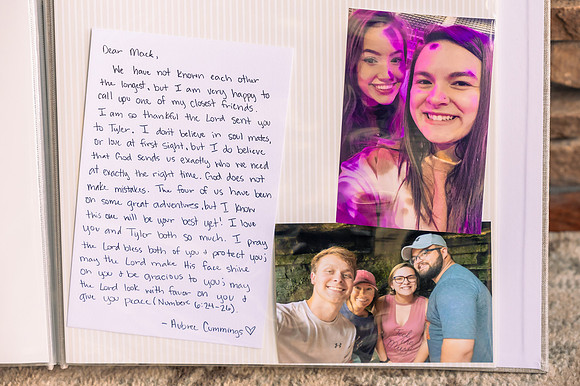 Dear Mack,
We have not known each other
the longest, but I am very happy to
call you one of my closest friends.
I am so thankful the Lord sent you
to Tyler. I don't believe in soul mates,
or love at first sight, but I do believe
that God sends us exactly who we need
at exactly the right time. God does not
make mistakes. The four of us have been
on some great adventures, but I know
this one will be your best yet! I love
you and Tyler both so much. I pray
the Lord bless both of you & protect you;
may the Lord make His face shine
on you & be gracious to you; may
the Lord look with favor on you &
give you peace (Numbers 6:24-26).
- Aubree Cummings ♡